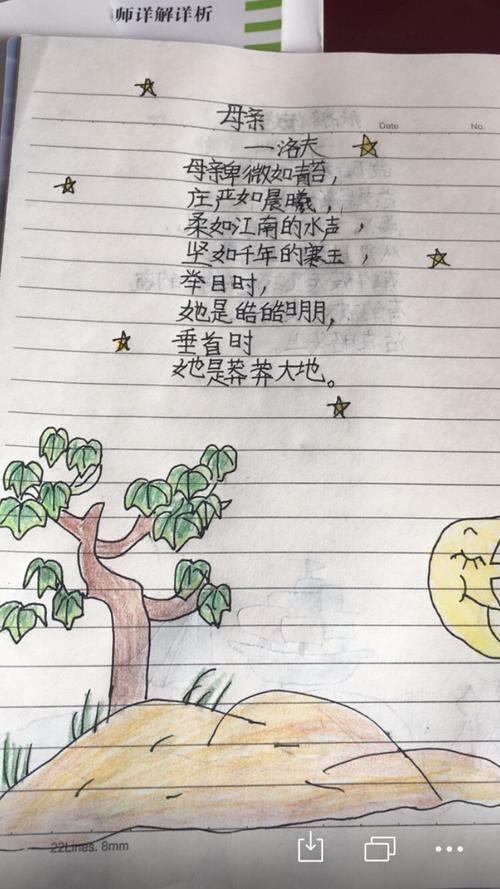 师详解详析
Date No.
母亲
—洛夫
母亲卑微如青苔，
庄严如晨曦，
柔如江南的水声，
坚如千年的寒玉，
举目时，
她是皓皓明朋，
垂首时
她是莽莽大地。
22Lines. 8mm